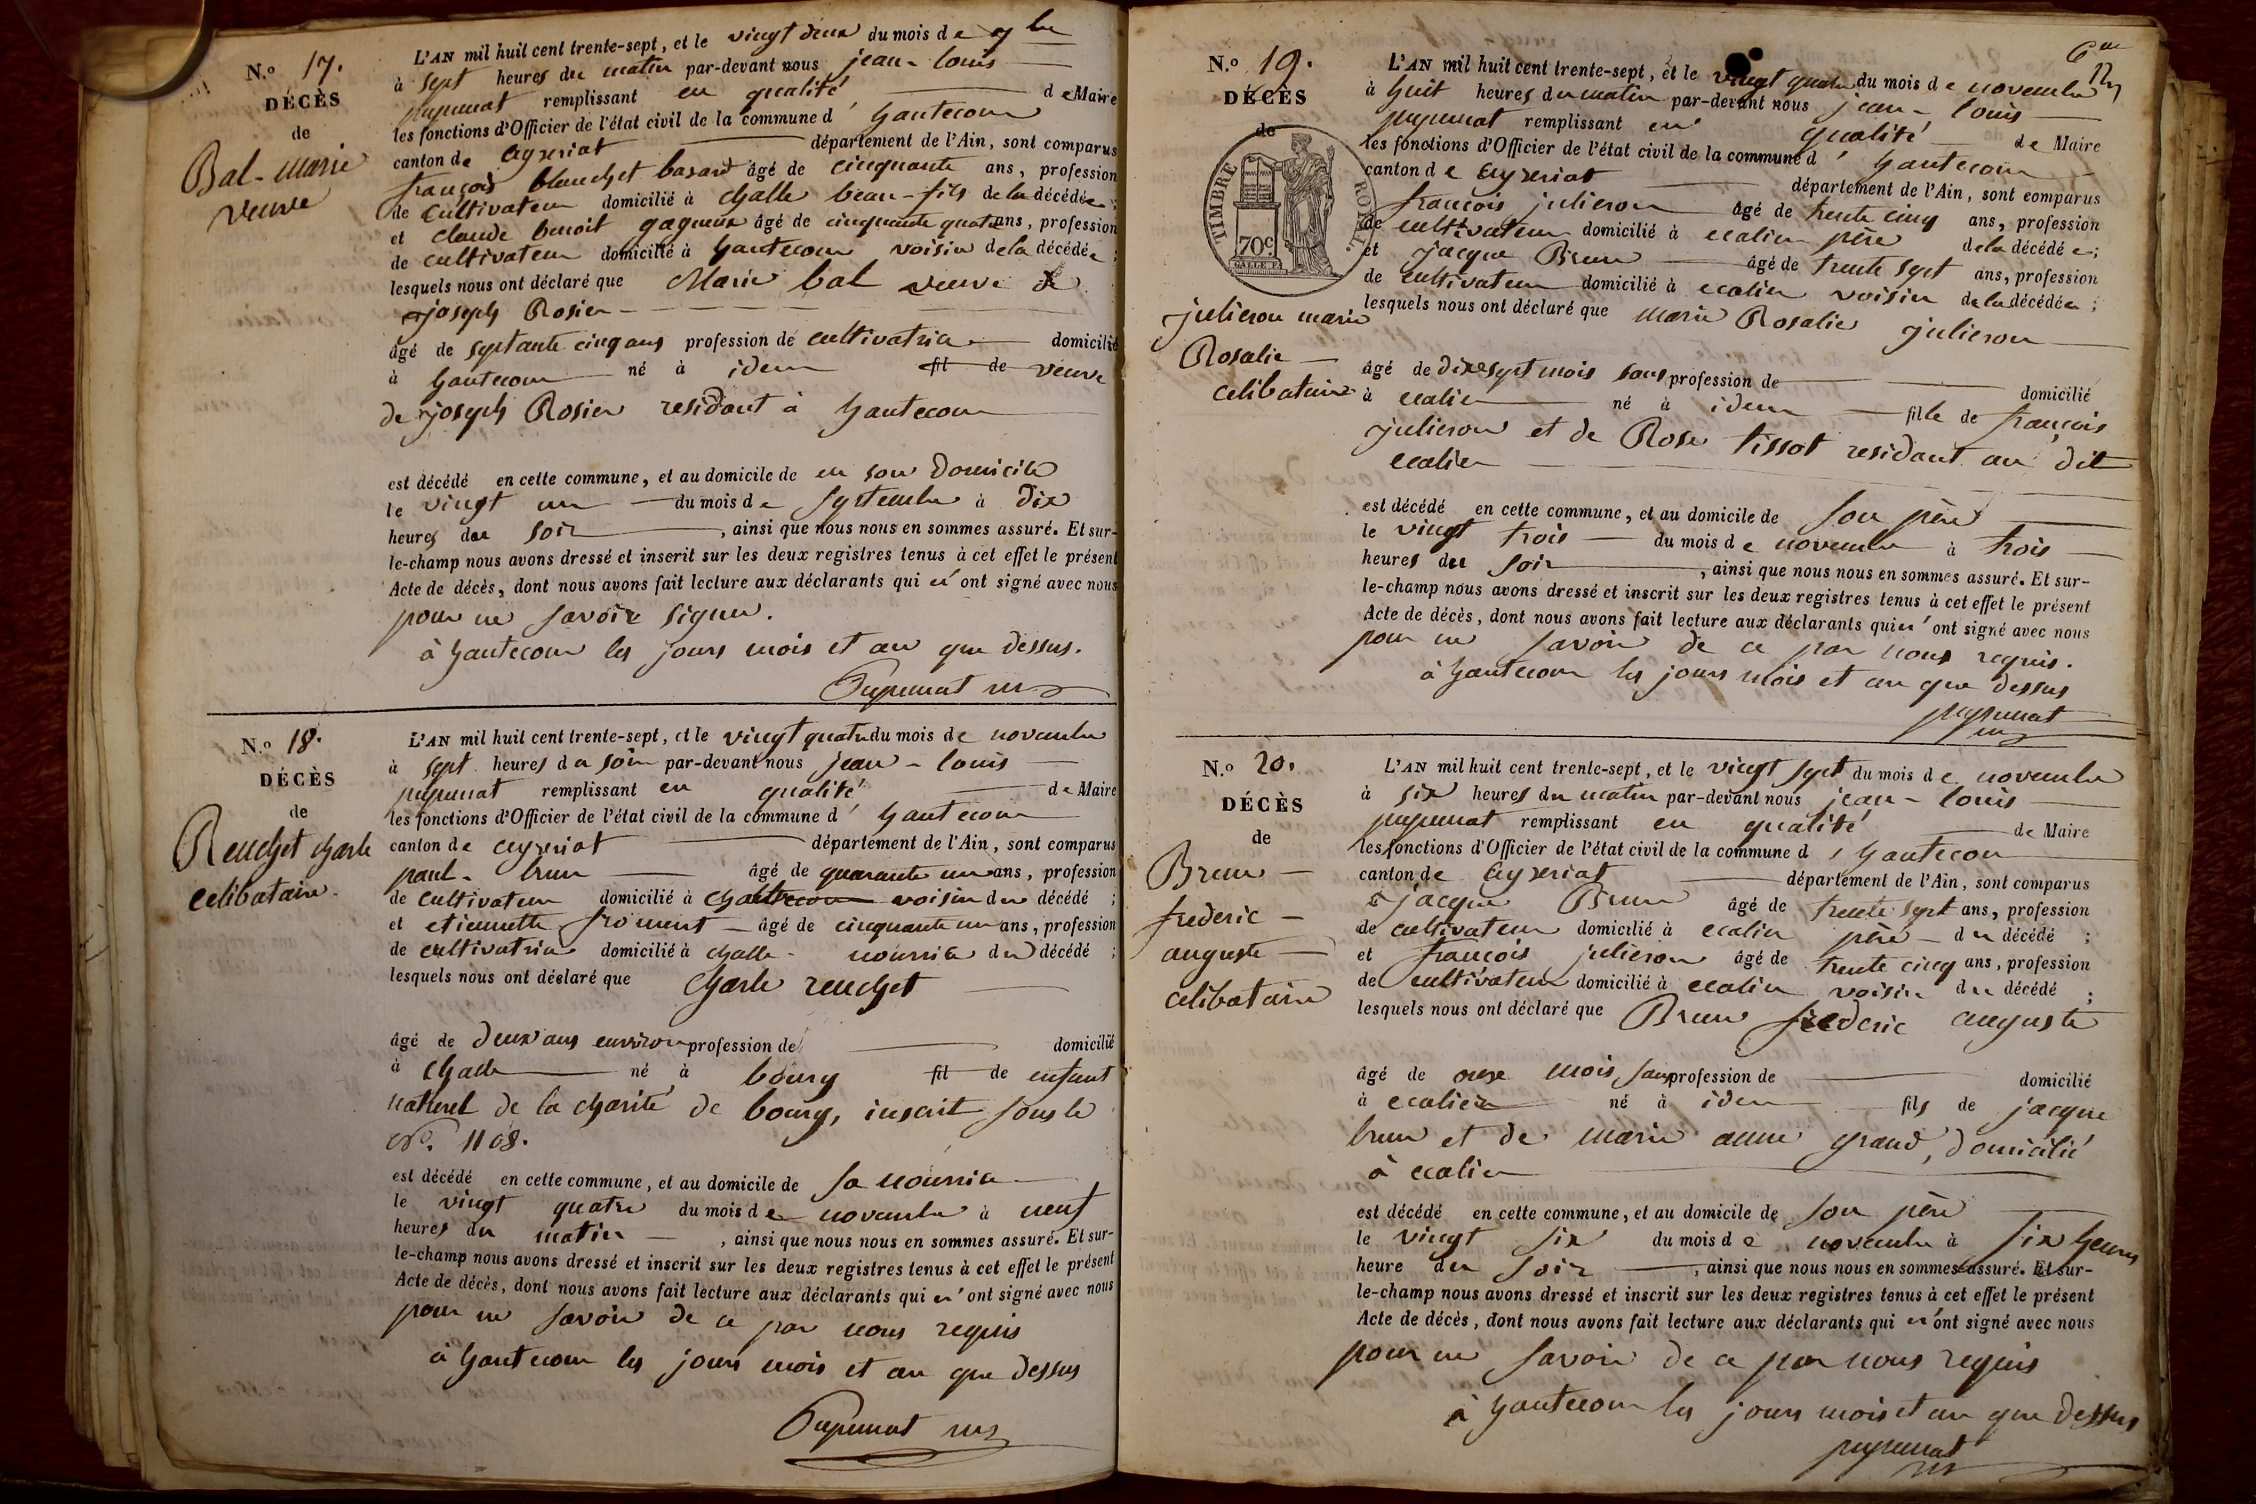 N.o 17.
DÉCÈS
de
Bal - marie
veuve
L'AN mil huit cent trente-sept, et le vingt deux du mois de 7bre
à sept heures du matin par-devant nous jean - louis
pupunat remplissant en qualité de Maire
les fonctions d'Officier de l'état civil de la commune d' hautecour
canton de ceyzeriat département de l'Ain, sont comparus
françois blanchet basard âgé de cinquante ans, profession
de cultivateur domicilié à challe beau-fils de la décédée;
et claude benoit gagneux âgé de cinquante quatre ans, profession
de cultivateur domicilié à hautecour voisin de la décédée;
lesquels nous ont déclaré que Marie bal veuve de
joseph Rosier
âgé de septante cinq ans profession de cultivatrice domicilié
à hautecour né à idem fil de veuve
de joseph Rosier residant à hautecour
est décédé en cette commune, et au domicile de en son domicile
le vingt un du mois de septembre à dix
heures du soir, ainsi que nous nous en sommes assuré. Et sur-
le-champ nous avons dressé et inscrit sur les deux registres tenus à cet effet le présent
Acte de décès, dont nous avons fait lecture aux déclarants qui n' ont signé avec nous
pour ne savoir signer.
à hautecour les jours mois et an que dessus.
Pupunat
N.o 18.
DÉCÈS
de
Reuchet charle
celibataire.
L'AN mil huit cent trente-sept, et le vingt quatre du mois de novembre
à sept heures du soir par-devant nous jean - louis
pupunat remplissant en qualité de Maire
les fonctions d'Officier de l'état civil de la commune d' hautecour
canton de ceyzeriat département de l'Ain, sont comparus
paul - brun âgé de quarante un ans, profession
de cultivateur domicilié à voisin du décédé;
et etiennette froment âgé de cinquante un ans, profession
de cultivatrice domicilié à challe - nourrice du décédé;
lesquels nous ont déclaré que charle reuchet
âgé de deux ans environ profession de domicilié
à challe né à bourg fil de enfant
naturel de la charité de bourg, inscrit sous le
No. 1108.
est décédé en cette commune, et au domicile de sa nourrice
le vingt quatre du mois de novembre à neuf
heures du matin, ainsi que nous nous en sommes assuré. Et sur-
le-champ nous avons dressé et inscrit sur les deux registres tenus à cet effet le présent
Acte de décès, dont nous avons fait lecture aux déclarants qui n' ont signé avec nous
pour ne savoir de ce par nous requis
à hautecour les jours mois et an que dessus
Pupunat
6me
N.o 19.
DÉCÈS
de
TIMBRE ROYAL.
70c.
julieron marie
Rosalie
celibataire
L'AN mil huit cent trente-sept, et le vingt quatre du mois de novembre
à huit heures du matin par-devant nous jean - louis
pupunat remplissant en qualité de Maire
les fonctions d'Officier de l'état civil de la commune d' hautecour
canton de ceyzeriat département de l'Ain, sont comparus
francois julieron âgé de trente cinq ans, profession
de cultivateur domicilié à ecolier père de la décédée;
et jacque Brun âgé de trente sept ans, profession
de cultivateur domicilié à ecolier voisin de la décédée;
lesquels nous ont déclaré que marie Rosalie julieron
âgé de dixsept mois sans profession de domicilié
à ecolier né à idem fille de françois
julieron et de Rose tissot residant au dit
ecolier
est décédé en cette commune, et au domicile de son père
le vingt trois du mois de novembre à trois
heures du soir, ainsi que nous nous en sommes assuré. Et sur-
le-champ nous avons dressé et inscrit sur les deux registres tenus à cet effet le présent
Acte de décès, dont nous avons fait lecture aux déclarants qui n' ont signé avec nous
pour ne savoir de ce par nous requis.
à hautecour les jours mois et an que dessus
pupunat
N.o 20.
DÉCÈS
de
Brun
frederic
auguste
celibataire
L'AN mil huit cent trente-sept, et le vingt sept du mois de novembre
à six heures du matin par-devant nous jean - louis
pupunat remplissant en qualité de Maire
les fonctions d'Officier de l'état civil de la commune d' hautecour
canton de Ceyzeriat département de l'Ain, sont comparus
jacque Brun âgé de trente sept ans, profession
de cultivateur domicilié à ecolier père du décédé;
et françois julieron âgé de trente cinq ans, profession
de cultivateur domicilié à ecolier voisin du décédé;
lesquels nous ont déclaré que Brun frederic auguste
âgé de onze mois sans profession de domicilié
à ecolier né à idem fils de jacque
brun et de marie anne grand, domicilié
à ecolier
est décédé en cette commune, et au domicile de son père
le vingt six du mois de novembre à six heures
heure du soir, ainsi que nous nous en sommes assuré. Et sur-
le-champ nous avons dressé et inscrit sur les deux registres tenus à cet effet le présent
Acte de décès, dont nous avons fait lecture aux déclarants qui n' ont signé avec nous
pour ne savoir de ce par nous requis
à hautecour les jours mois et an que dessus
pupunat